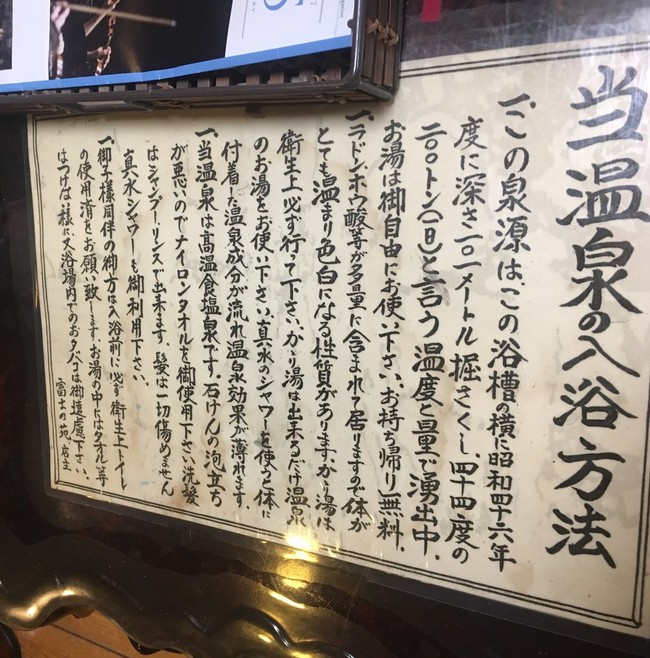 当温泉の入浴方法
一、この泉源は、この浴槽の横に昭和四十六年
度に深さ二〇一メートル掘さくし、四十四度の
二〇〇トン(一日)と言う温度と量で湧出中、
お湯は御自由にお使い下さい、お持ち帰り無料、
一、ラドン、ホウ酸等が多量に含まれて居りますので体が
とても温まり色白になる性質があります、かり湯は
衛生上必ず行って下さい、かり湯は出来るだけ温泉
のお湯をお使い下さい、真水のシャワーを使うと体に
付着した温泉成分が流れ温泉効果が薄れます、
一、当温泉は高温食塩泉です、石けんの泡立ち
が悪いのでナイロンタオルを御使用下さい、洗髪
はシャンプーリンスで出来ます、髪は一切傷めません
真水シャワーも御利用下さい、
一、御子様同伴の御方は入浴前に必ず衛生上トイレ
の使用済をお願い致します、お湯の中にはタオル等
はつけない様に、又浴場内でのおタバコは御遠慮下さい、
富士の苑、店主